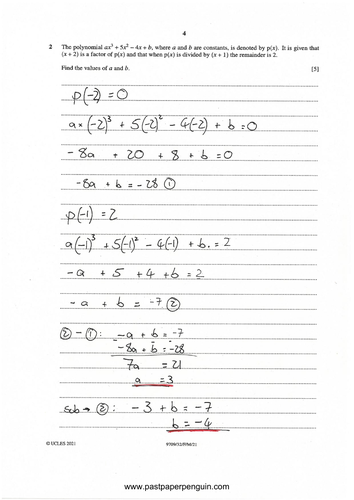 4
2 The polynomial ax³ + 5x² − 4x + b, where a and b are constants, is denoted by p(x). It is given that
(x + 2) is a factor of p(x) and that when p(x) is divided by (x + 1) the remainder is 2.
Find the values of a and b. [5]
p(-2) = 0
a×(-2)³ + 5(-2)² - 4(-2) + b = 0
- 8a + 20 + 8 + b = 0
-8a + b = -28 ①
p(-1) = 2
a(-1)³ + 5(-1)² - 4(-1) + b = 2
- a + 5 + 4 + b = 2
- a + b = -7 ②
② - ① : -a + b = -7
-8a + b = -28
7a = 21
a = 3
Sub → ② : - 3 + b = -7
b = -4
© UCLES 2021 9709/32/F/M/21
www.pastpaperpenguin.com